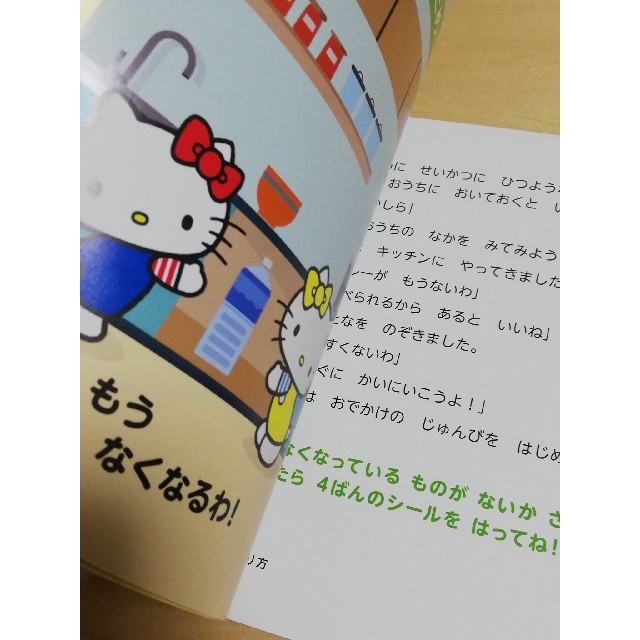 もう
なくなるわ!
せいかつに ひつような
おうちに おいておくと
しら」
おうちの なかを みてみよう
キッチンに やってきました
が もうないわ」
べられるから あると いいね」
なを のぞきました。
すくないわ」
ぐに かいにいこうよ！」
は おでかけの じゅんびを はじめ
なくなっている ものが ないか さ
たら 4ばんのシールを はってね!
り方